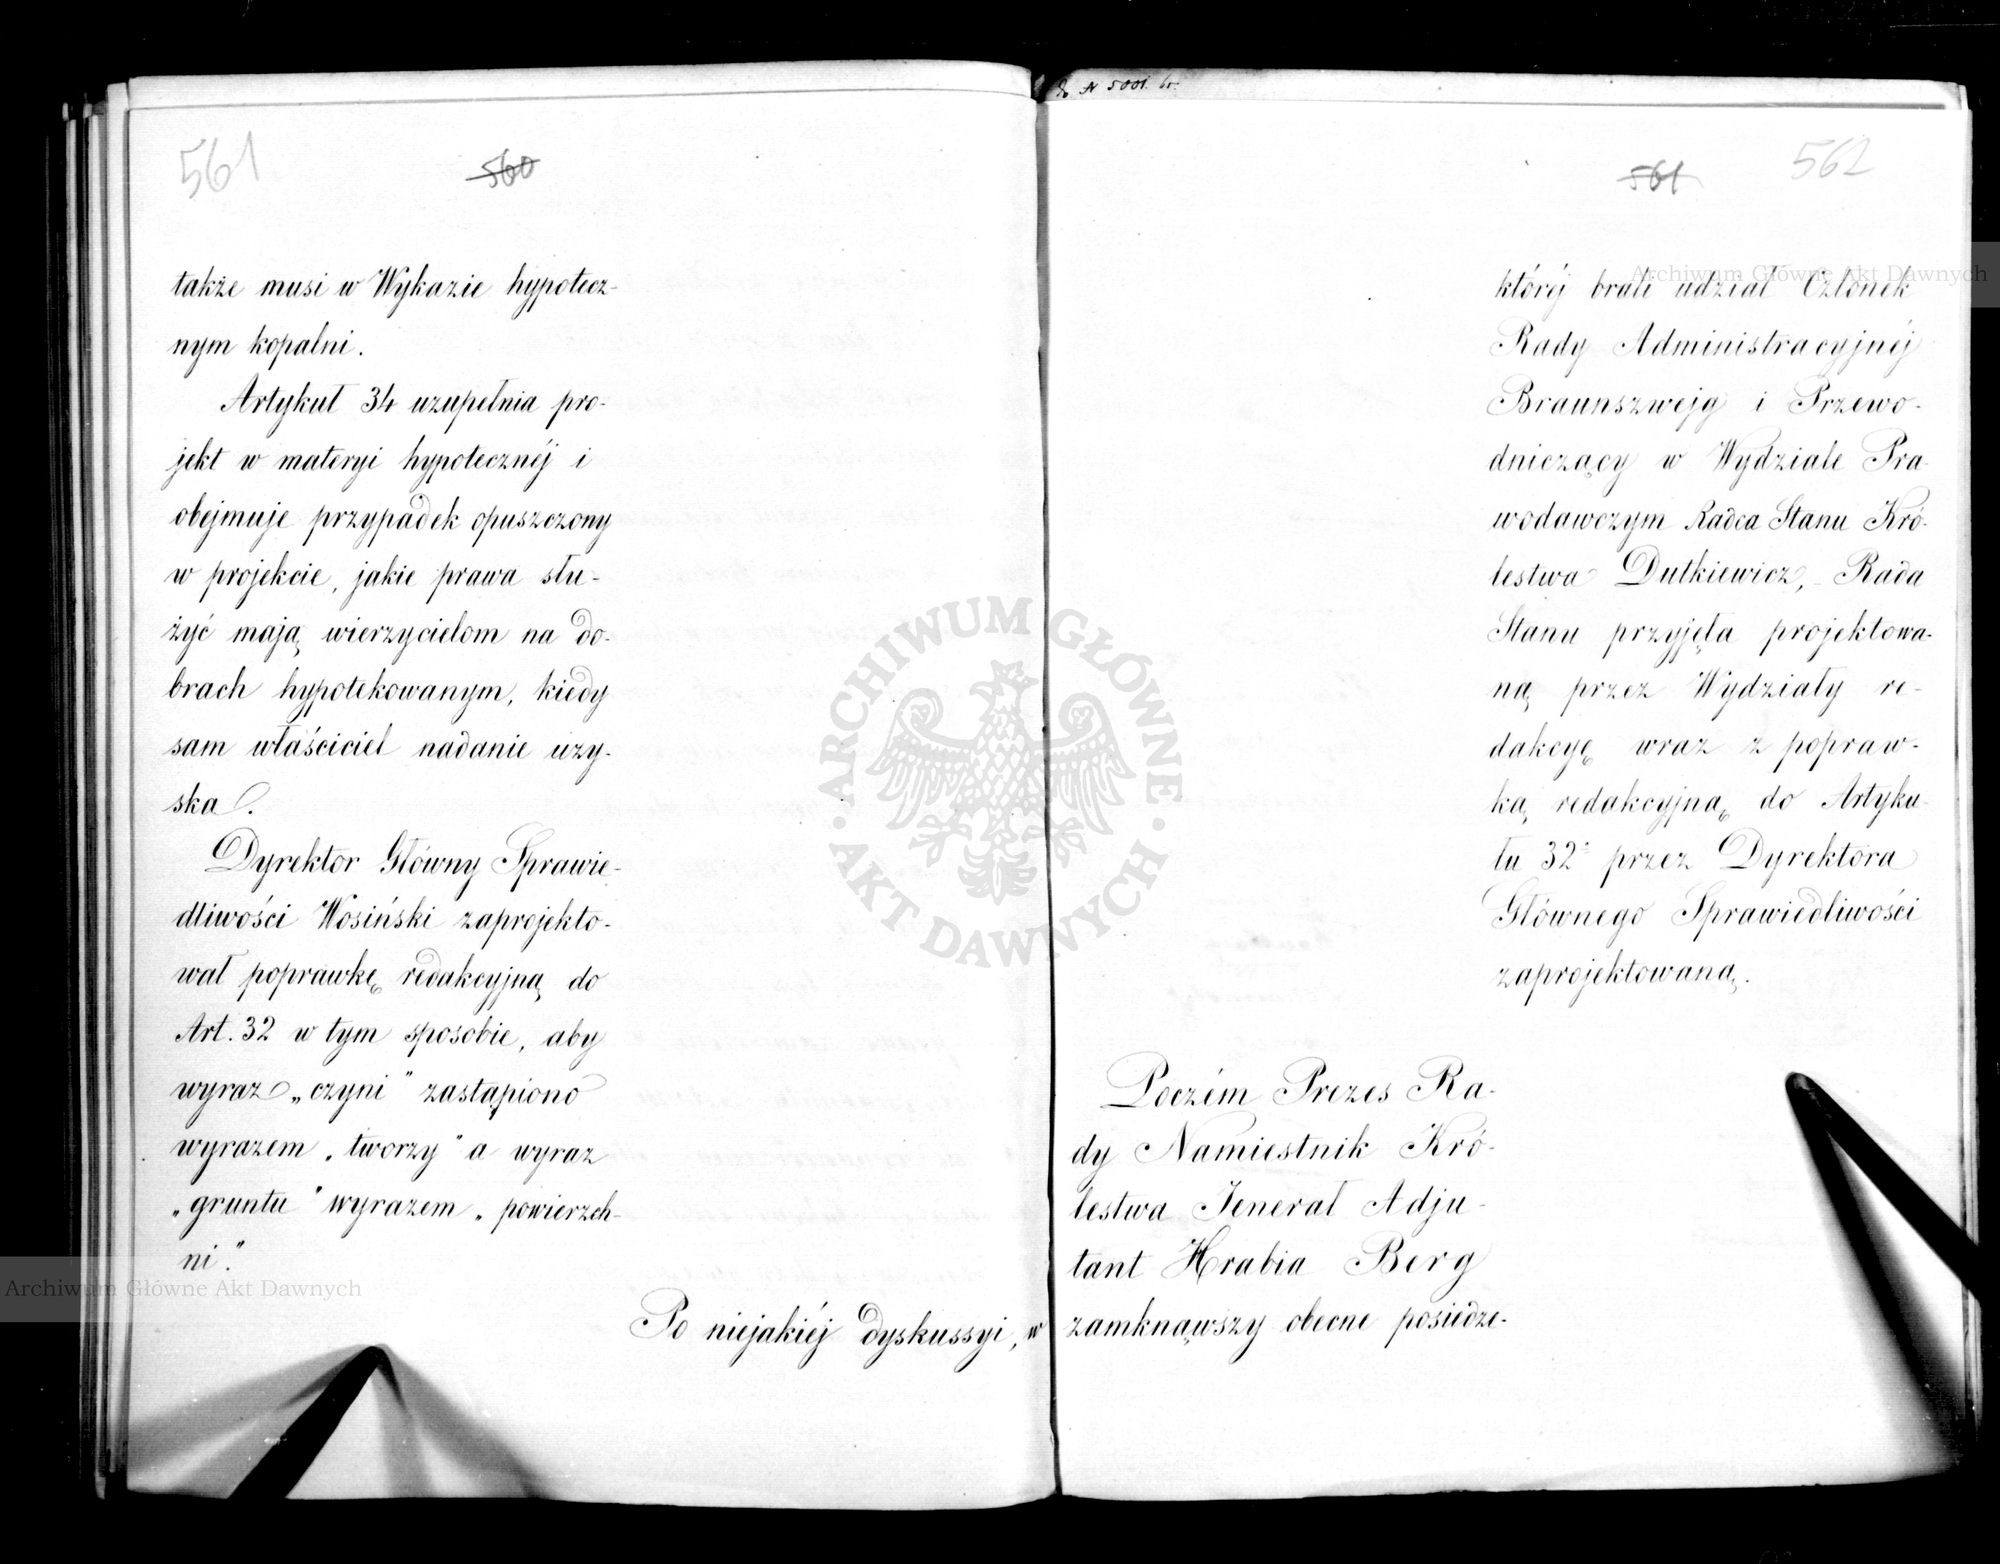 561
560
także musi w Wykazie hypotecz-
nym kopalni.
Artykuł 34 uzupełnia pro-
jekt w materyi hypotecznéj i
obejmuje przypadek opuszczony
w projekcie, jakie prawa słu-
żyć mają wierzycielom na do-
brach hypotekowanym, kiedy
sam właściciel nadanie uzy-
ska.
Dyrektor Główny Sprawie-
dliwości Wosiński zaprojekto-
wał poprawkę redakcyjną do
Art. 32 w tym sposobie, aby
wyraz „czyni" zastąpiono
wyrazem „tworzy" a wyraz
„gruntu" wyrazem „powierzch-
ni."
Po niejakiéj dyskussyi, w
N 5001
561
562
któréj brali udział Członek
Rady Administracyjnéj
Braunszwejg i Przewo-
dniczący w Wydziale Pra-
wodawczym Radca Stanu Kró-
lestwa Dutkiewicz, Rada
Stanu przyjęła projektowa-
ną przez Wydziały re-
dakcyę wraz z popraw-
ką redakcyjną do Artyku-
łu 32 przez Dyrektora
Głównego Sprawiedliwości
zaprojektowaną.
Poczém Prezes Ra-
dy Namiestnik Kró-
lestwa Jenerał Adju-
tant Hrabia Berg
zamknąwszy obecne posiedze-
ARCHIWUM GŁÓWNE
AKT DAWNYCH
Archiwum Główne Akt Dawnych
Archiwum Główne Akt Dawnych